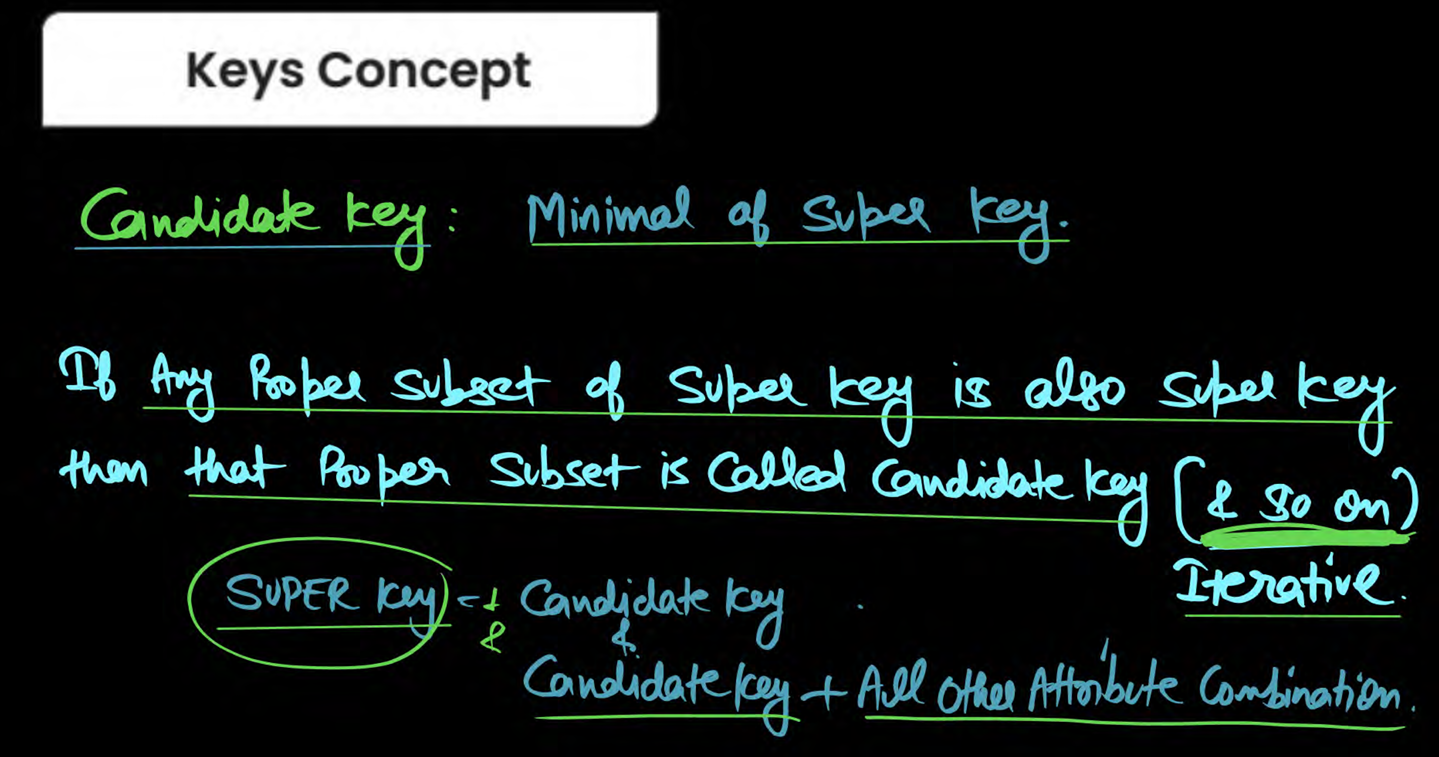 Keys Concept
Candidate key : Minimal of Super key.
If Any Proper subset of Super key is also Super key
then that Proper Subset is Called Candidate key (& So on)
Iterative.
SUPER key = Candidate key
&
Candidate key + All Other Attribute Combination.